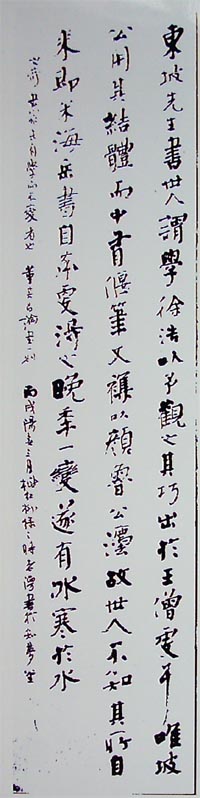 東坡先生書世人謂學徐浩以予觀之其巧出於王僧虔耳唯坡
公用其結體而中有偃筆又雜以顏魯公灋故世人不知其所自
來即米海岳書自率更得之晚年一變遂有冰寒於水
之奇書家未有學而不變者也 論書一則 丙戌陽春三月